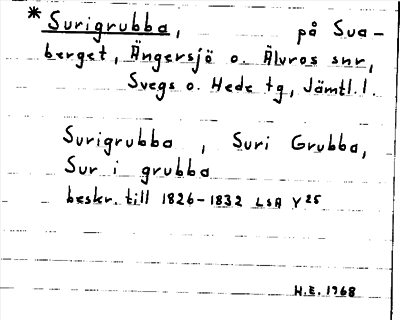 * Surigrubba, på Sua-
berget, Ängersjö o. Älvros snr,
Svegs o. Hede tg, Jämtl.l.
Surigrubba , Suri Grubba,
Sur i grubba
beskr. till 1826-1832 LSA Y25
H.E. 1968